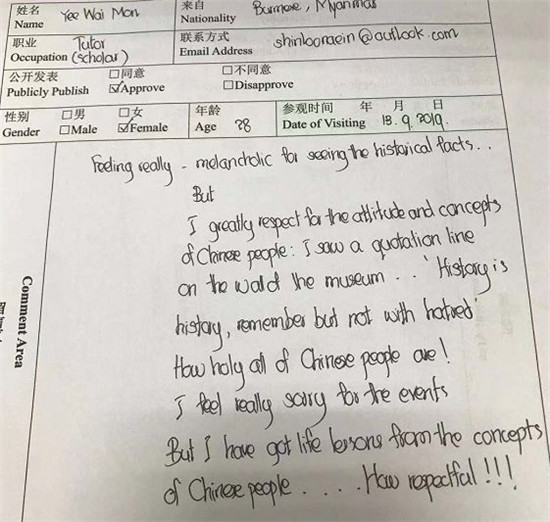 姓名 Name Yee Wai Mon 来自 Nationality Burmese, Myanmar
职业 Occupation Tutor (scholar) 联系方式 Email Address shinloonaein@outlook.com
公开发表 Publicly Publish □同意 ☑Approve □不同意 □Disapprove
性别 Gender □男 □Male □女 ☑Female 年龄 Age 28 参观时间 年 月 日 Date of Visiting 18.9.2019.
Comment Area
Feeling really - melancholic for seeing the historical facts..
But
I greatly respect for the attitude and concepts
of Chinese people: I saw a quotation line
on the wall of the museum .. 'History is
history, remember but not with hatred'
How holy all of Chinese people are!
I feel really sorry for the events
But I have got life lessons from the concepts
of Chinese people . . . . . How respectful !!!